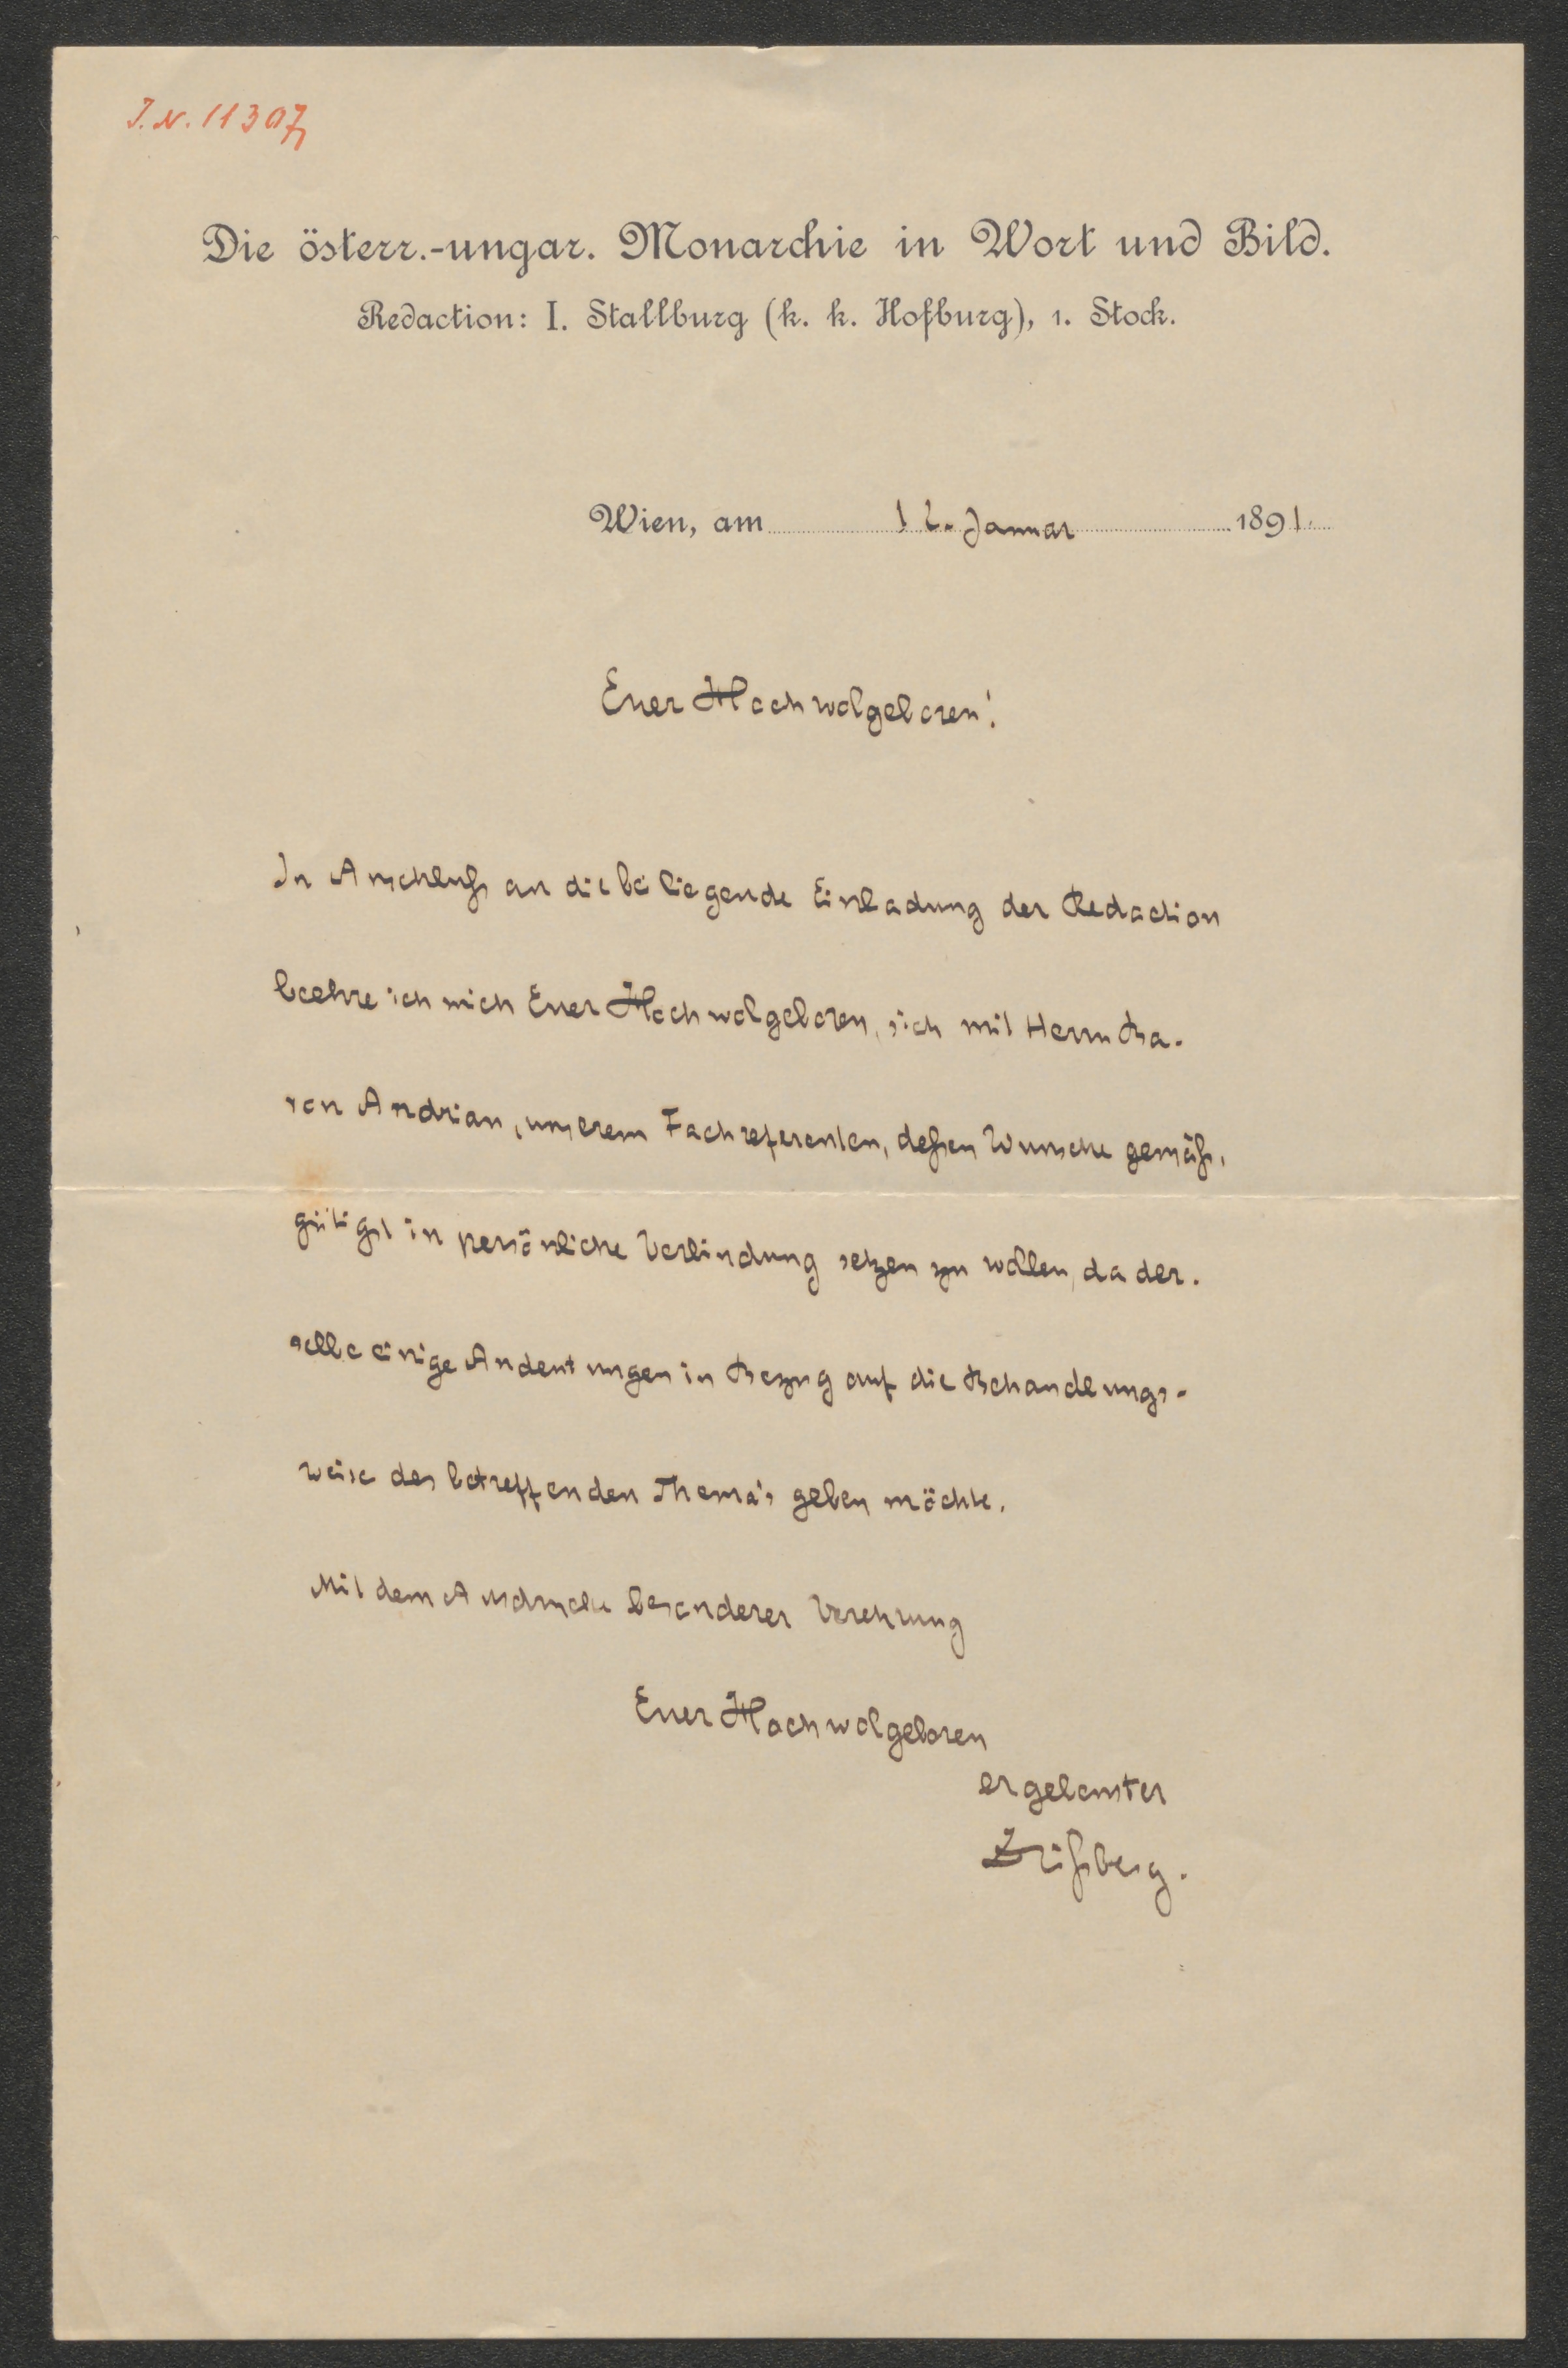 J. N. 11307
Die österr.-ungar. Monarchie in Wort und Bild.
Redaction: I. Stallburg (k. k. Hofburg), 1. Stock.
Wien, am 12. Januar 1891.
Euer Hochwolgeboren!
In Anschluß an die beiliegende Einladung der Redaction
beehre ich mich Euer Hochwolgeboren, sich mit Herrn Ba-
ron Andrian, unserem Fachreferenten, deßen Wunsche gemäß,
gütigst in persönliche Verbindung setzen zu wollen, da der-
selbe einige Andeutungen in Bezug auf die Behandlungs-
weise des betreffenden Thema's geben möchte.
Mit dem Ausdrucke besonderer Verehrung
Euer Hochwolgeboren
ergebenster
Zeißberg.